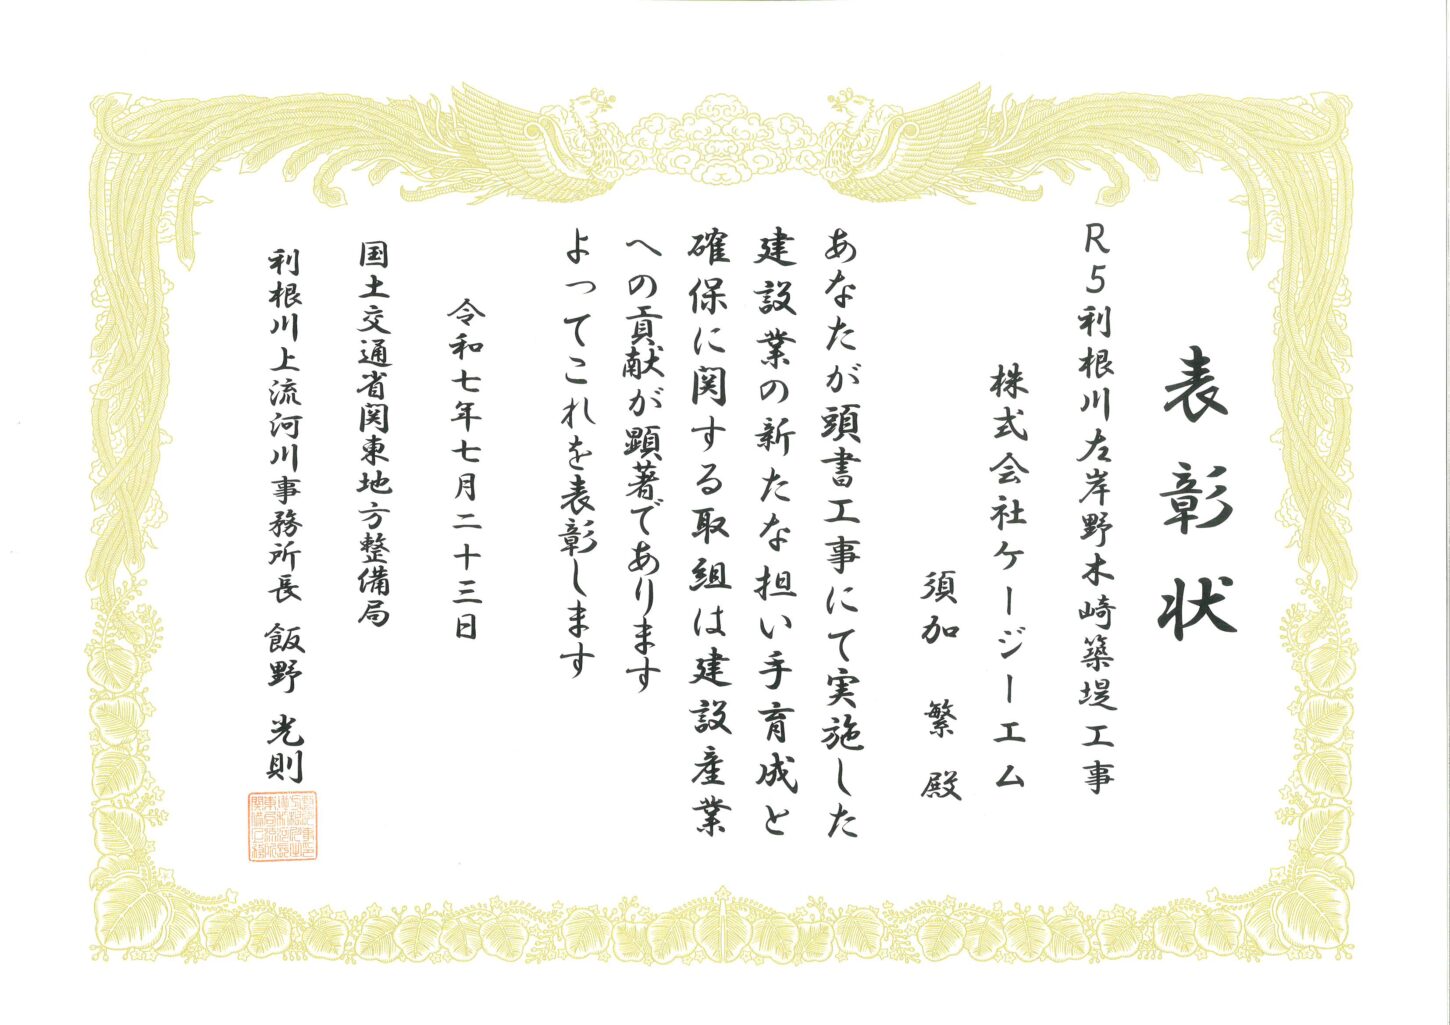 表彰状
R5利根川左岸野木崎築堤工事
株式会社ケージーエム
須加 繁 殿
あなたが頭書工事にて実施した
建設業の新たな担い手育成と
確保に関する取組は建設産業
への貢献が顕著であります
よってこれを表彰します
令和七年七月二十三日
国土交通省関東地方整備局
利根川上流河川事務所長 飯野 光則